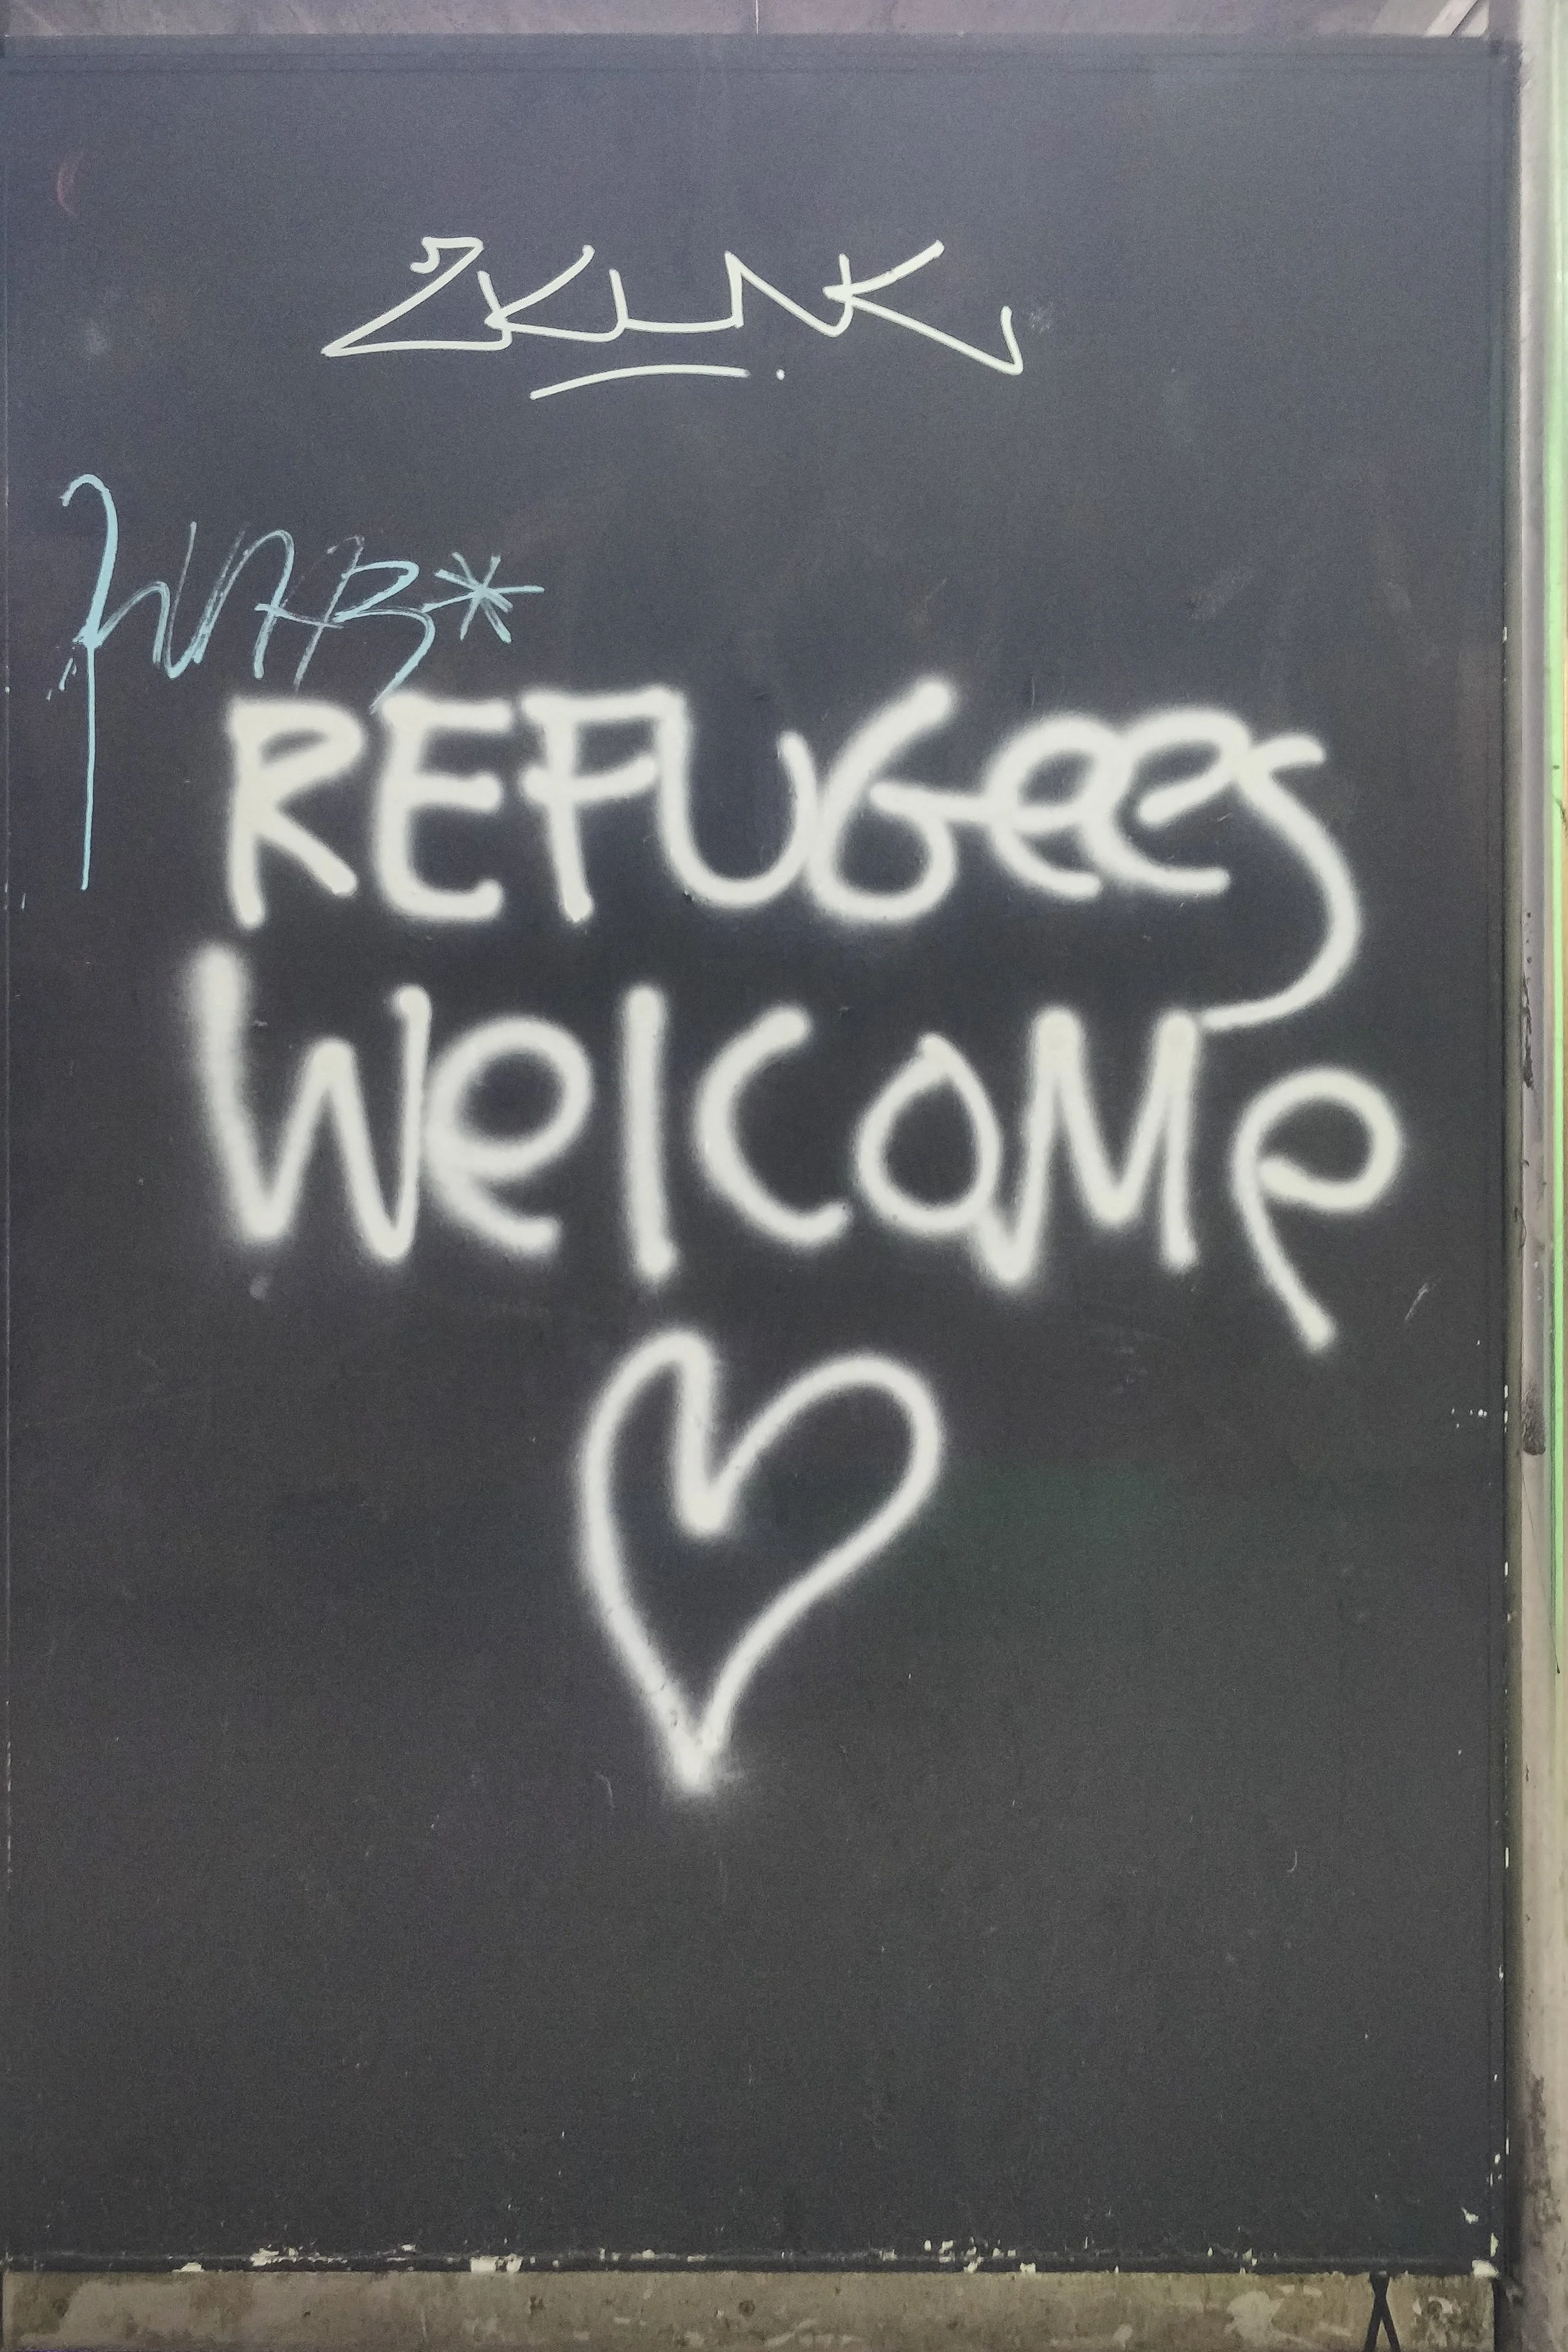 ZKUNK
REFUGees
WelCOMe